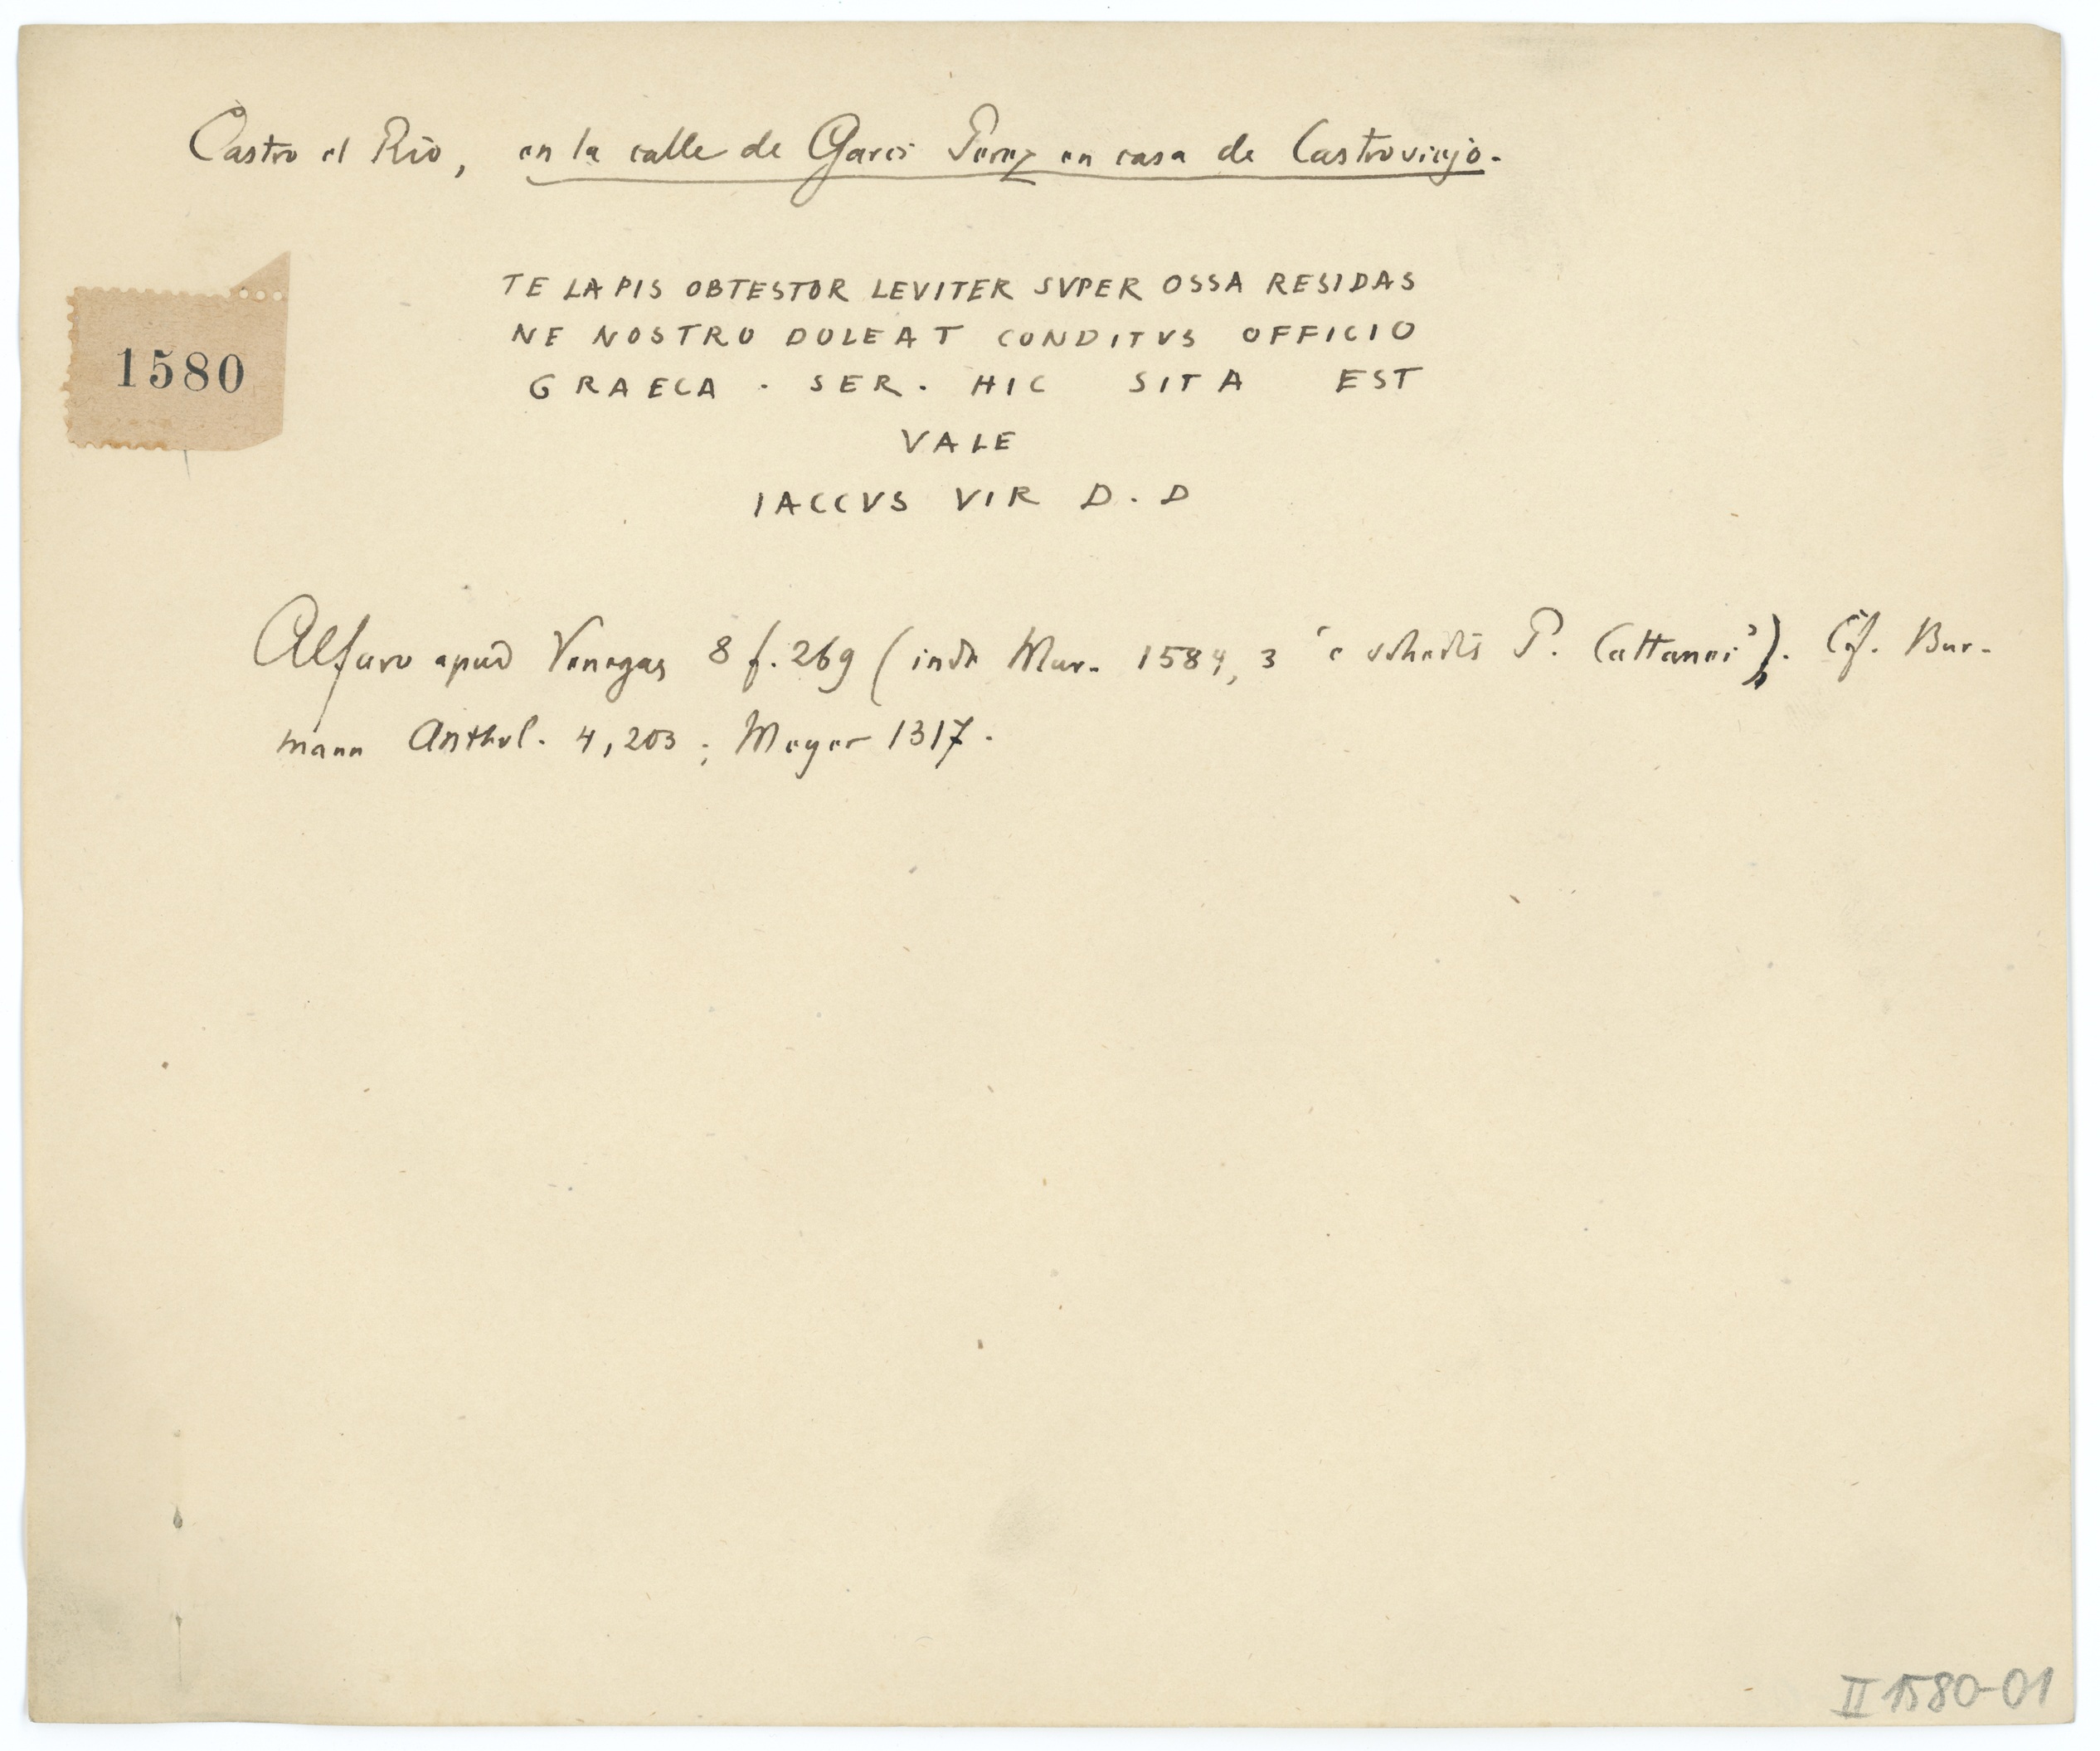 Castro el Rio, en la calle de Garci Perez en casa de Castroviejo.
1580
TE LAPIS OBTESTOR LEVITER SVPER OSSA RESIDAS
NE NOSTRO DOLEAT CONDITVS OFFICIO
GRAECA · SER · HIC SITA EST
VALE
IACCVS VIR D · D
Alfaro apud Venegas 8 f. 269 (inde Mur. 1584, 3 'e schedis P. Cattanei'). Cf. Bur-
mann Anthol. 4, 203; Meyer 1317.
II 1580-01